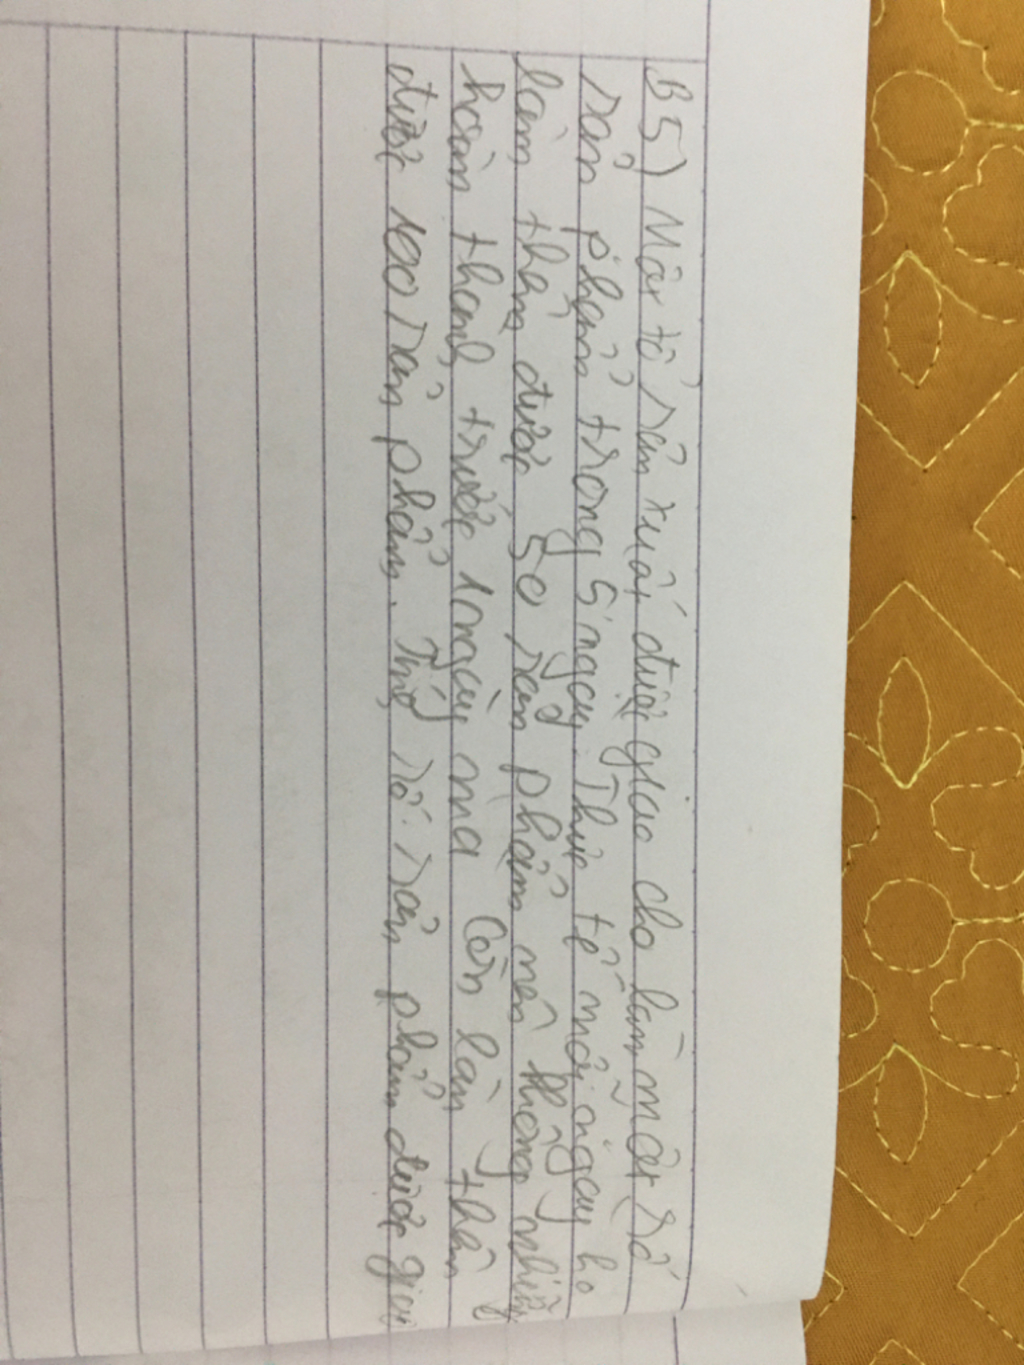 B5) Một tổ sản xuất được giao cho làm một số
sản phẩm trong 5 ngày. Thực tế mỗi ngày họ
làm thêm được 50 sản phẩm nên không những
hoàn thành trước 1 ngày mà còn làm thêm
được 100 sản phẩm. Tính số sản phẩm được giao